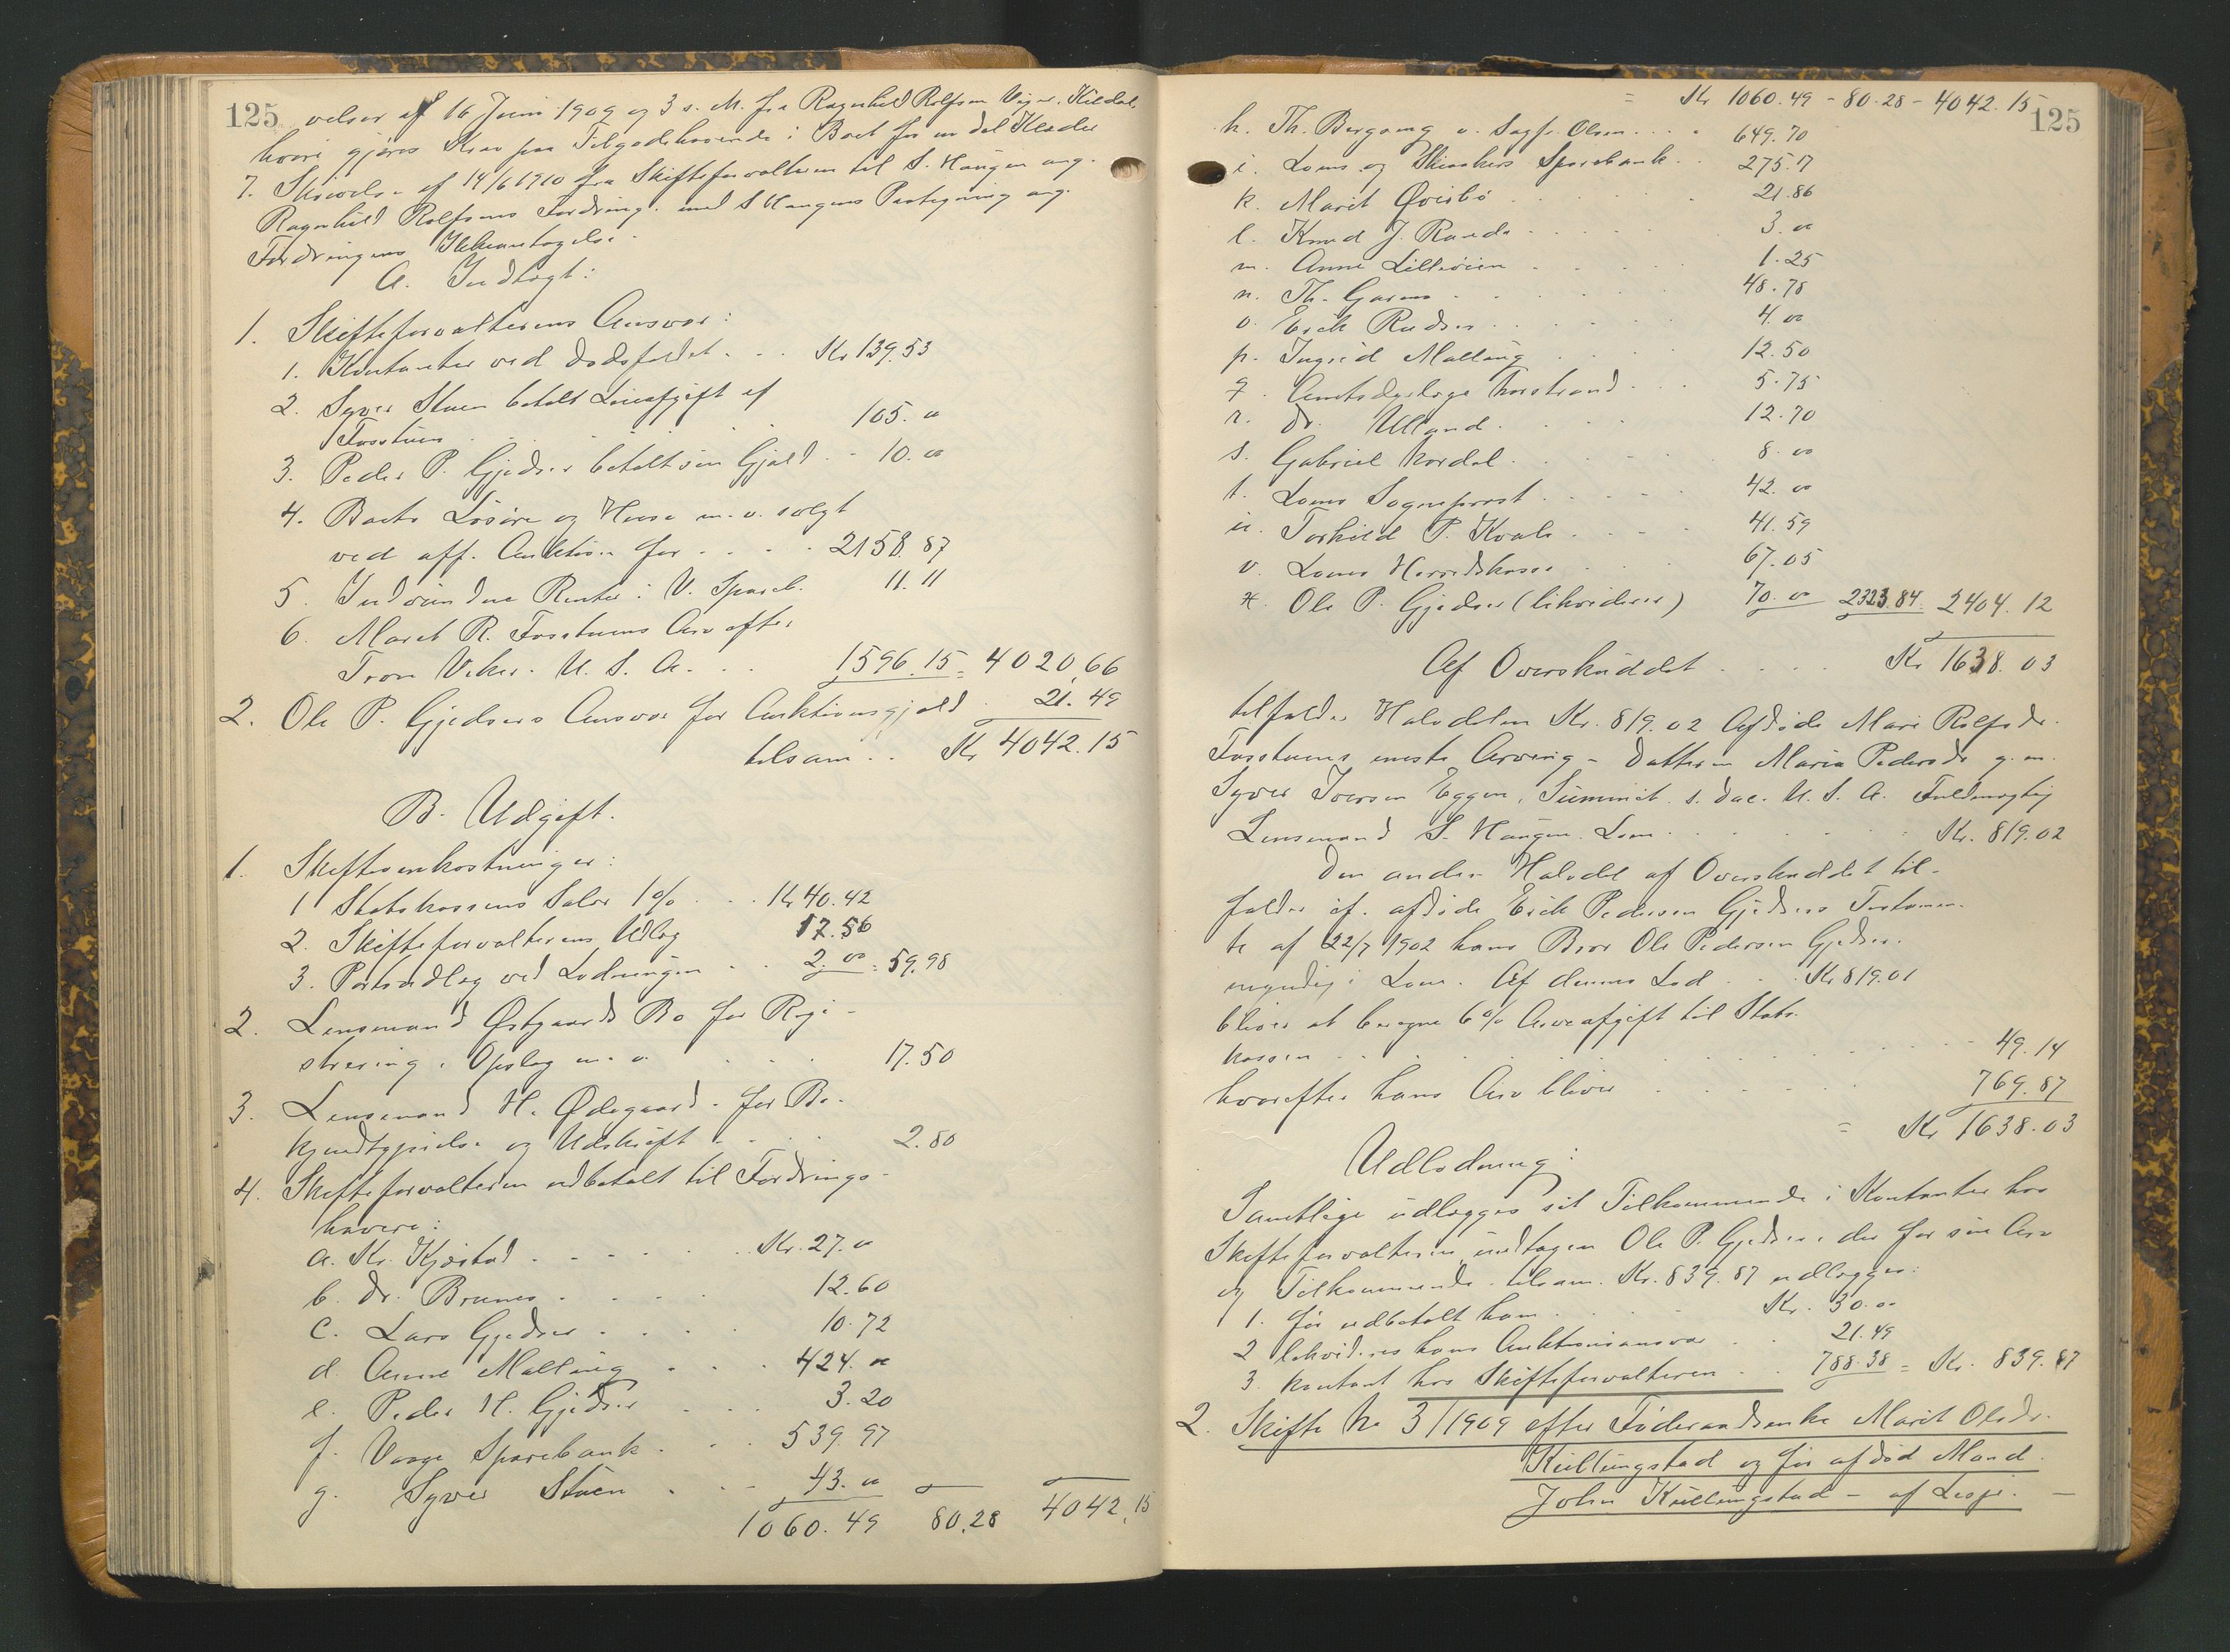 125
velser af 16 Juni 1909 og 3 s. M. fra Ragnhild Rolfsen Viger. Kildal
hvori gjøres Krav paa Tilgodehavende i Boet for en del Klæder
7. Skrivelse af 14/6 1910 fra Skifteforvalteren til S. Haugen ang.
Ragnhild Rolfsens Fordring. med S Haugens Paategning ang.
Fordringens Ikkeantagelse.
A. Indtægt:
1. Skifteforvalterens Ansvar:
1. Kontanter ved Dødsfaldet . . . Kr 139.53
2. Syver Stuen betalt Løieafgift af
Fosstuen . . . . . 105. "
3. Peder P. Gjedser betalt sin Gjæld . - 10. "
4. Boets Løsøre og Huse m. v. solgt
ved off. Auktion for . . . . 2158.87
5. Indvundne Renter i V. Spareb. 11.11
6. Marit R. Fosstuens Arv efter
Tron Viker. U. S. A. . . 1596.15 = 4020,66
2. Ole P. Gjedsers Ansvar for Auktionsgjæld . 21.49
tilsam . . Kr 4042.15
B. Udgift.
1. Skifteomkostninger:
1 Statskassens Salær 1 % . . . Kr 40.42
2. Skifteforvalterens Udlæg 17.56
3. Portoudlæg ved Lodningen . . 2. " = 59.98
2. Lensmand Østgaards Bo for Regi-
strering, Opslag m. v. . . . 17.50
3. Lensmand H. Ødegaard. for Be-
kjendtgjørelse og Udskrift . . . . 2.80
4. Skifteforvalteren udbetalt til Fordrings-
havere:
a. Kr. Kjæstad . . . . . . Kr. 27. "
b. Dr. Brunes . . . . . 12.60
c. Lars Gjedser . . . . . 10.72
d. Anne Malling . . . . 424. "
e. Peder H. Gjedser . . . . 3.20
f. Vaage Sparebank . . . . 539.97
g. Syver Stuen . . . - 43. "
1060.49 80,28 4042,15
= Kr 1060.49 - 80.28 - 4042.15
125
h. Th. Bergseng v. Sagf. Olsen . . . 649.70
i. Loms og Skiaakers Sparebank . . 275.17
k. Marit Øvisbø . . . . . . 21.86
l. Knud J. Runde . . . . . 3. "
m. Anne Lillesien . . . . . 1.25
n. Th. Garmo . . . . . . 48.78
o. Erik Rudser . . . . . . 4. "
p. Ingrid Malling . . . . 12.50
q. Amtsdyrlæge Norstrand . . . 5.75
r. Dr. Ulland . . . . . 12.70
s. Gabriel Nordal . . . . . 8. "
t. Loms Sogneprest . . . . . 42. "
u. Torkild P. Kvale . . . . 41.59
v. Loms Herredskasse . . . 67.05
x. Ole P. Gjedser (likviderer) 70. " 2323.84. 2404.12
Af Overskuddet . . . . Kr 1638.03
tilfalder Halvdelen Kr. 819.02 Afdøde Mari Rolfsdr.
Fosstuens eneste Arving - Datteren Maria Pedersdr g. m.
Syver Iversen Eggen, Summit. S. Dac. U. S. A. Fuldmægtig
Lensmand S. Haugen. Lom . . . . . . . Kr. 819.02
Den anden Halvdel af Overskuddet til-
falder if. afdøde Erik Pedersen Gjedsers Testamen-
te af 22/7 1902 hans Bror Ole Pedersen Gjedser.
myndig i Lom. Af dennes Lod . . . Kr 819.01
bliver at beregne 6 % Arveafgift til Stats-
kassen . . . . . . . . . . . . 49.14
hvorefter hans Arv bliver . . . . . . 769.87
= Kr 1638.03
Udlodning:
Samtlige udlægges sit Tilkommende i Kontanter hos
Skifteforvalteren undtagen Ole P. Gjedser. der for sin Arv
og Tilkommende. tilsam. Kr. 839.87 udlægges:
1. før udbetalt ham . . . . . Kr. 30. "
2 likvideres hans Auktionsansvar . . 21.49
3. kontant hos Skifteforvalteren . . 788.38 = Kr. 839.87
2. Skifte No 3/1909 efter Føderaadsenke Marit Olsdr.
Küllingstad og før afdød Mand
John Küllingstad - af Lesje. -